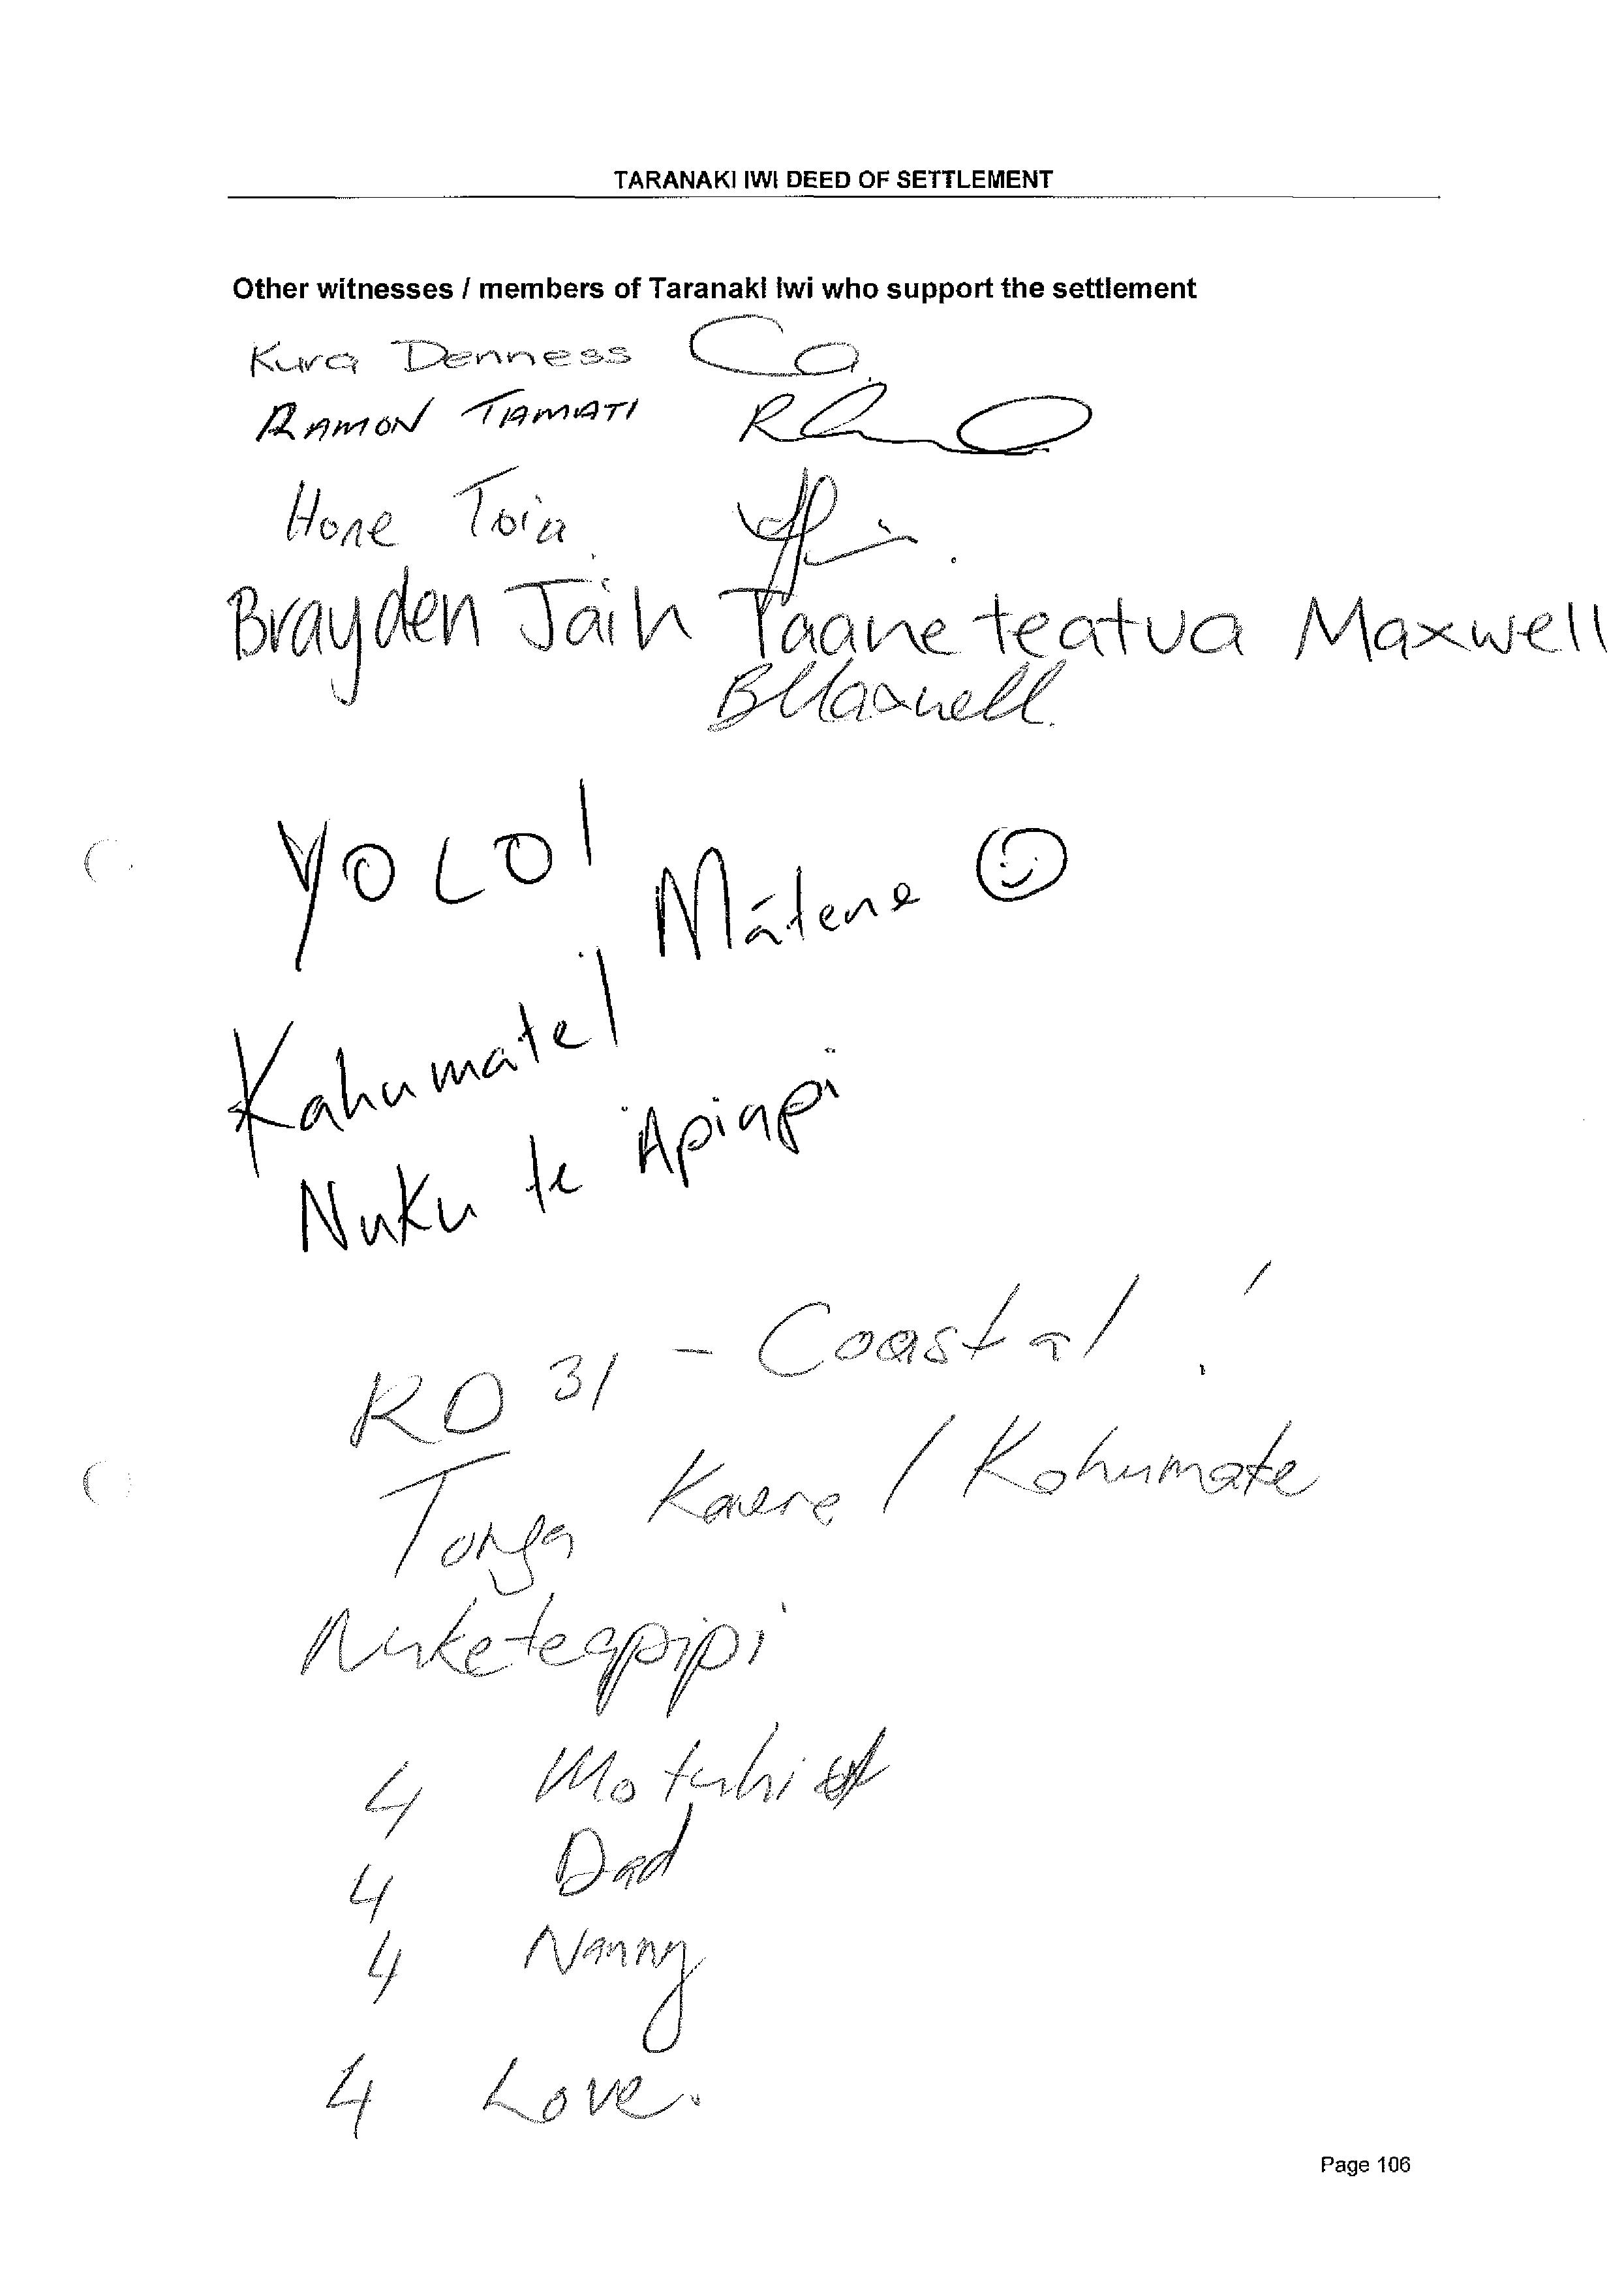 TARANAKI IWI DEED OF SETTLEMENT
Other witnesses / members of Taranaki Iwi who support the settlement
Kura Denness
RAMON TAMATI
Hone Toia
Brayden Jain Taane teatua Maxwell
BMaxwell
YOLO!
Mātene
Kahumate!
Nuku te Apiapi
RD 31 - Coastal!
Tonga Kawere / Kahumate
Nuketeapipi
4 Motuhi
4 Dad
4 Nanny
4 Love.
Page 106